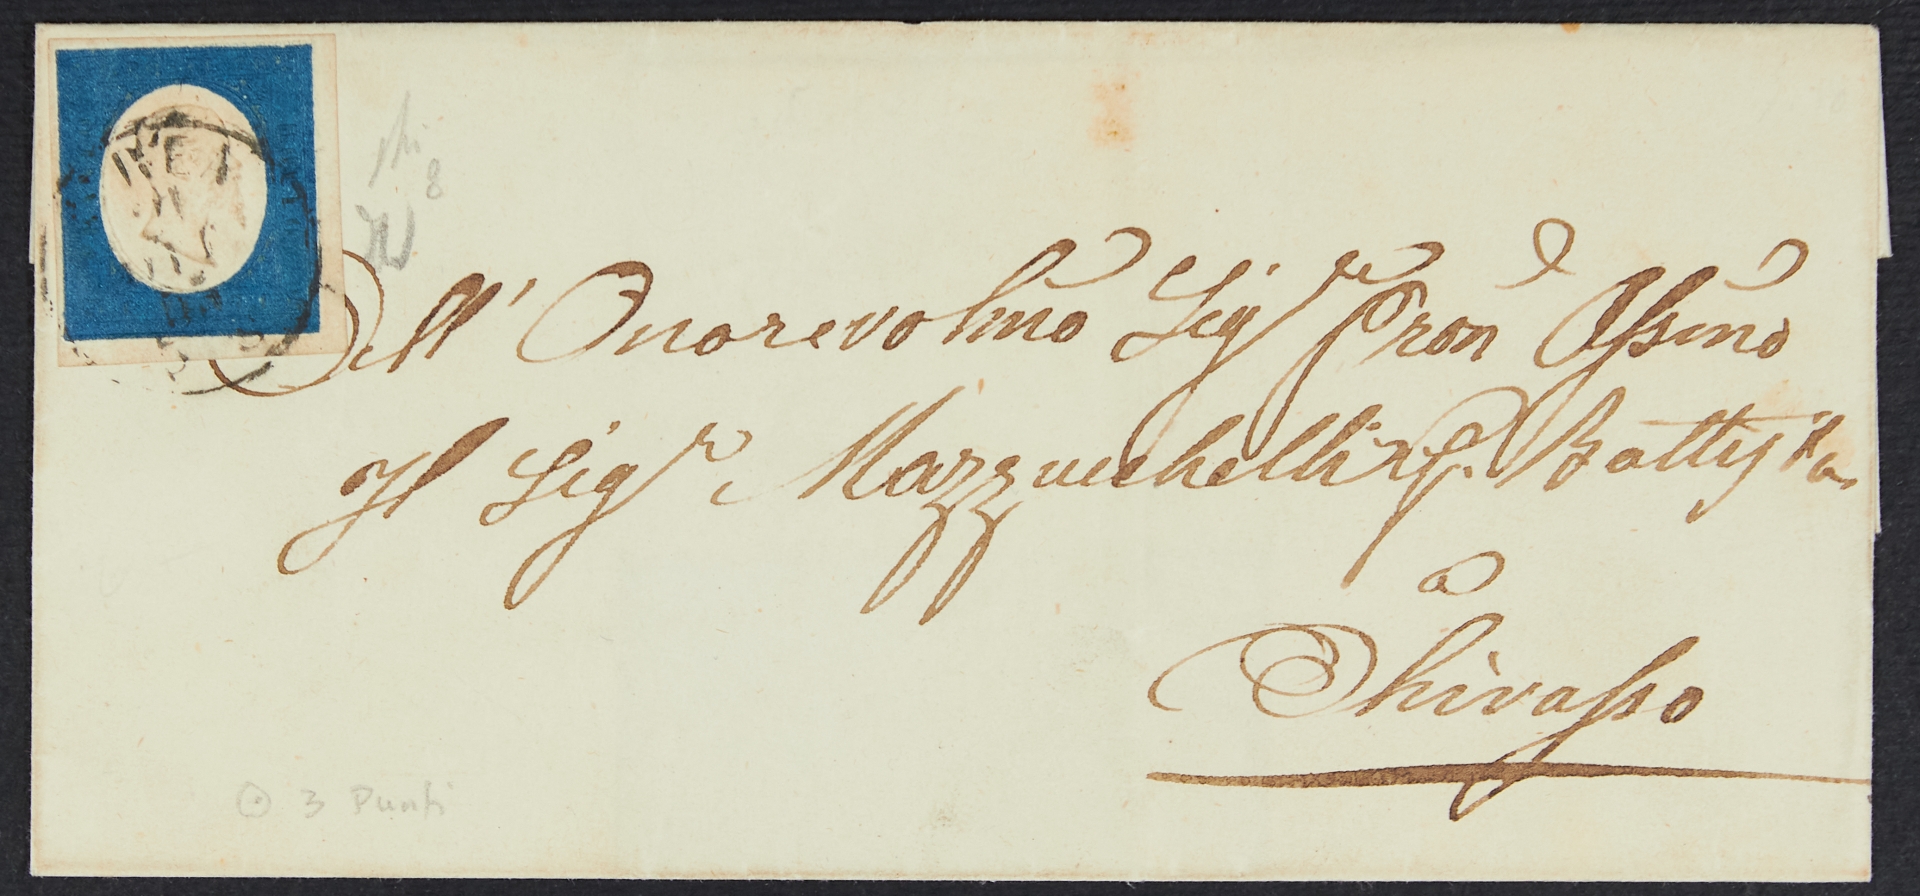 IVREA
8
All' Onorevolmo Sigre Pron Ossmo
Il Sigr Mazzucchelli Battista
a
Chivasso
3 Punti